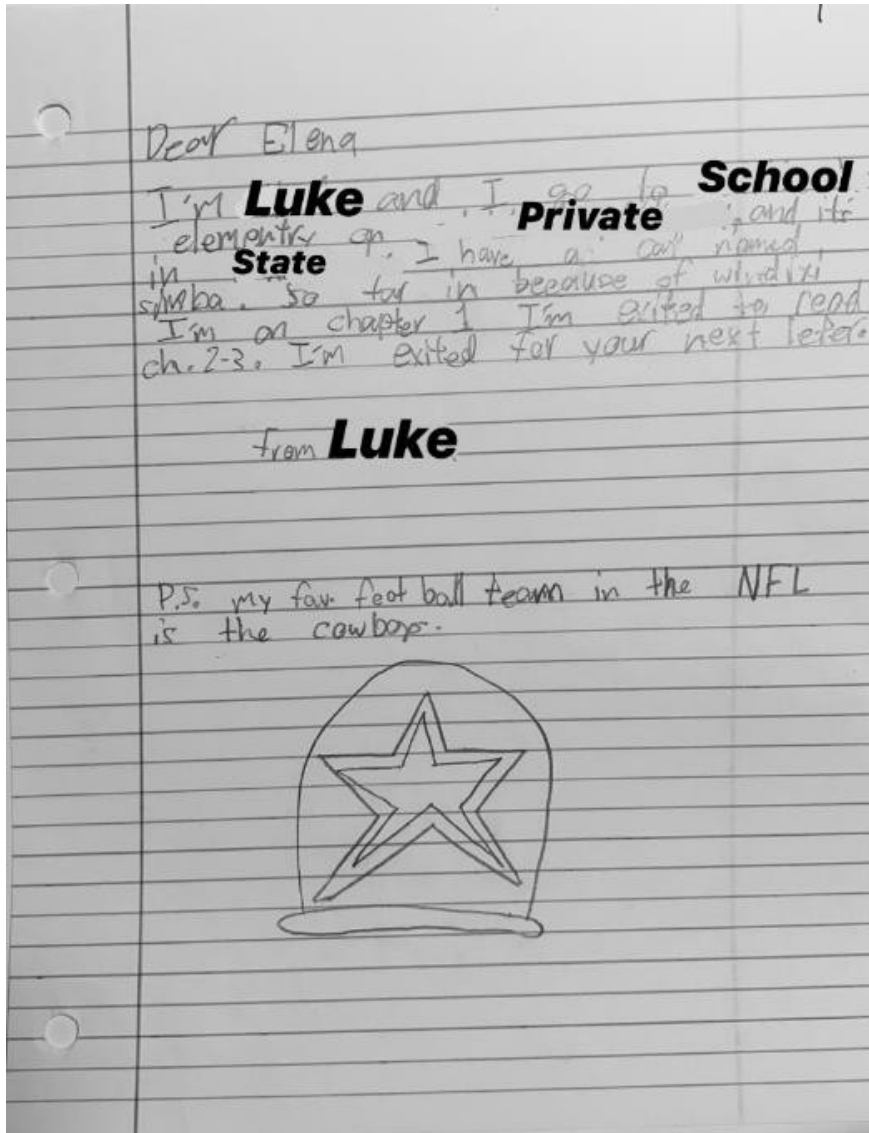 Dear Elena
I'm Luke and I go to School
elementry on Private, and it's
in State. I have a cat named
simba. So far in beecause of windixi
I'm on chapter 1 I'm exited to read
ch. 2-3. I'm exited for your next leter.
from Luke
P.S. my fav. foot ball team in the NFL
is the cowboys.